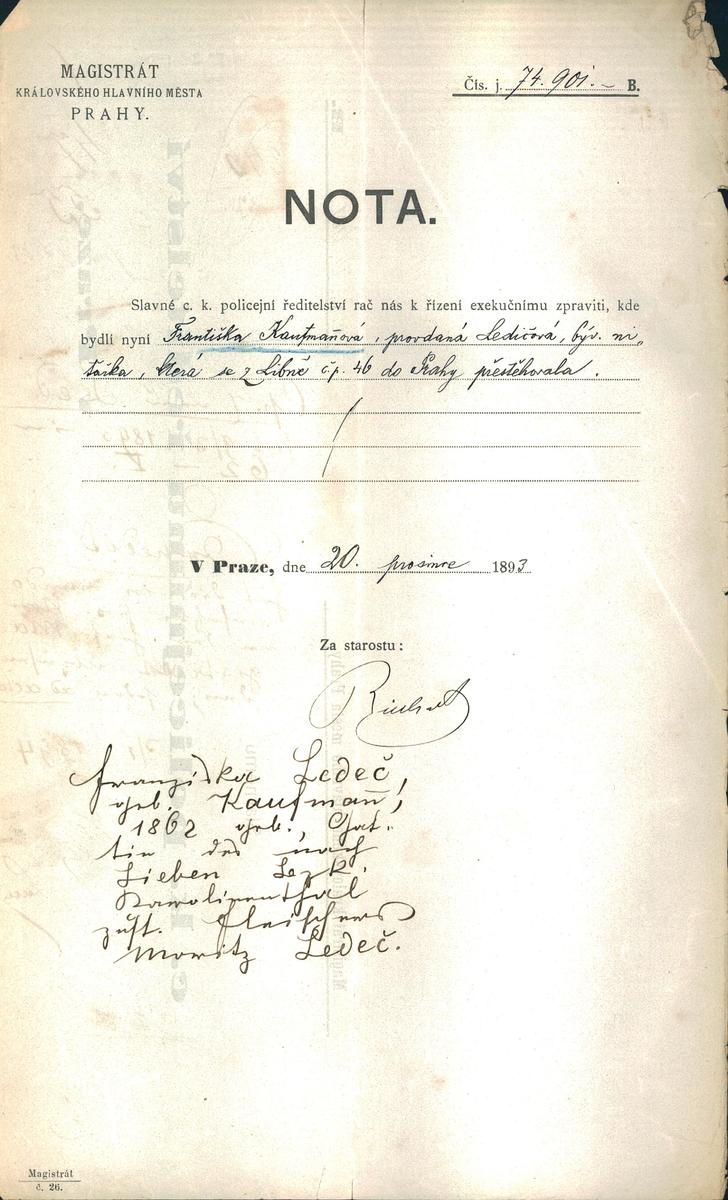 MAGISTRÁT
KRÁLOVSKÉHO HLAVNÍHO MĚSTA
PRAHY.
Čís. j. 74.901.— B.
NOTA.
Slavné c. k. policejní ředitelství rač nás k řízení exekučnímu zpraviti, kde
bydlí nyní Františka Kaufmañová, provdaná Ledičová, býv. ni„
tařka, která se z Libně č.p. 46 do Prahy přestěhovala.
V Praze, dne 20. prosince 1893
Za starostu:
Franziska Ledeč,
geb. Kaufmañ,
1862 geb., Gat-
tin des nach
Lieben Bezk.
Karolinenthal
zust. Fleischers
Moritz Ledeč.
Magistrát
č. 26.